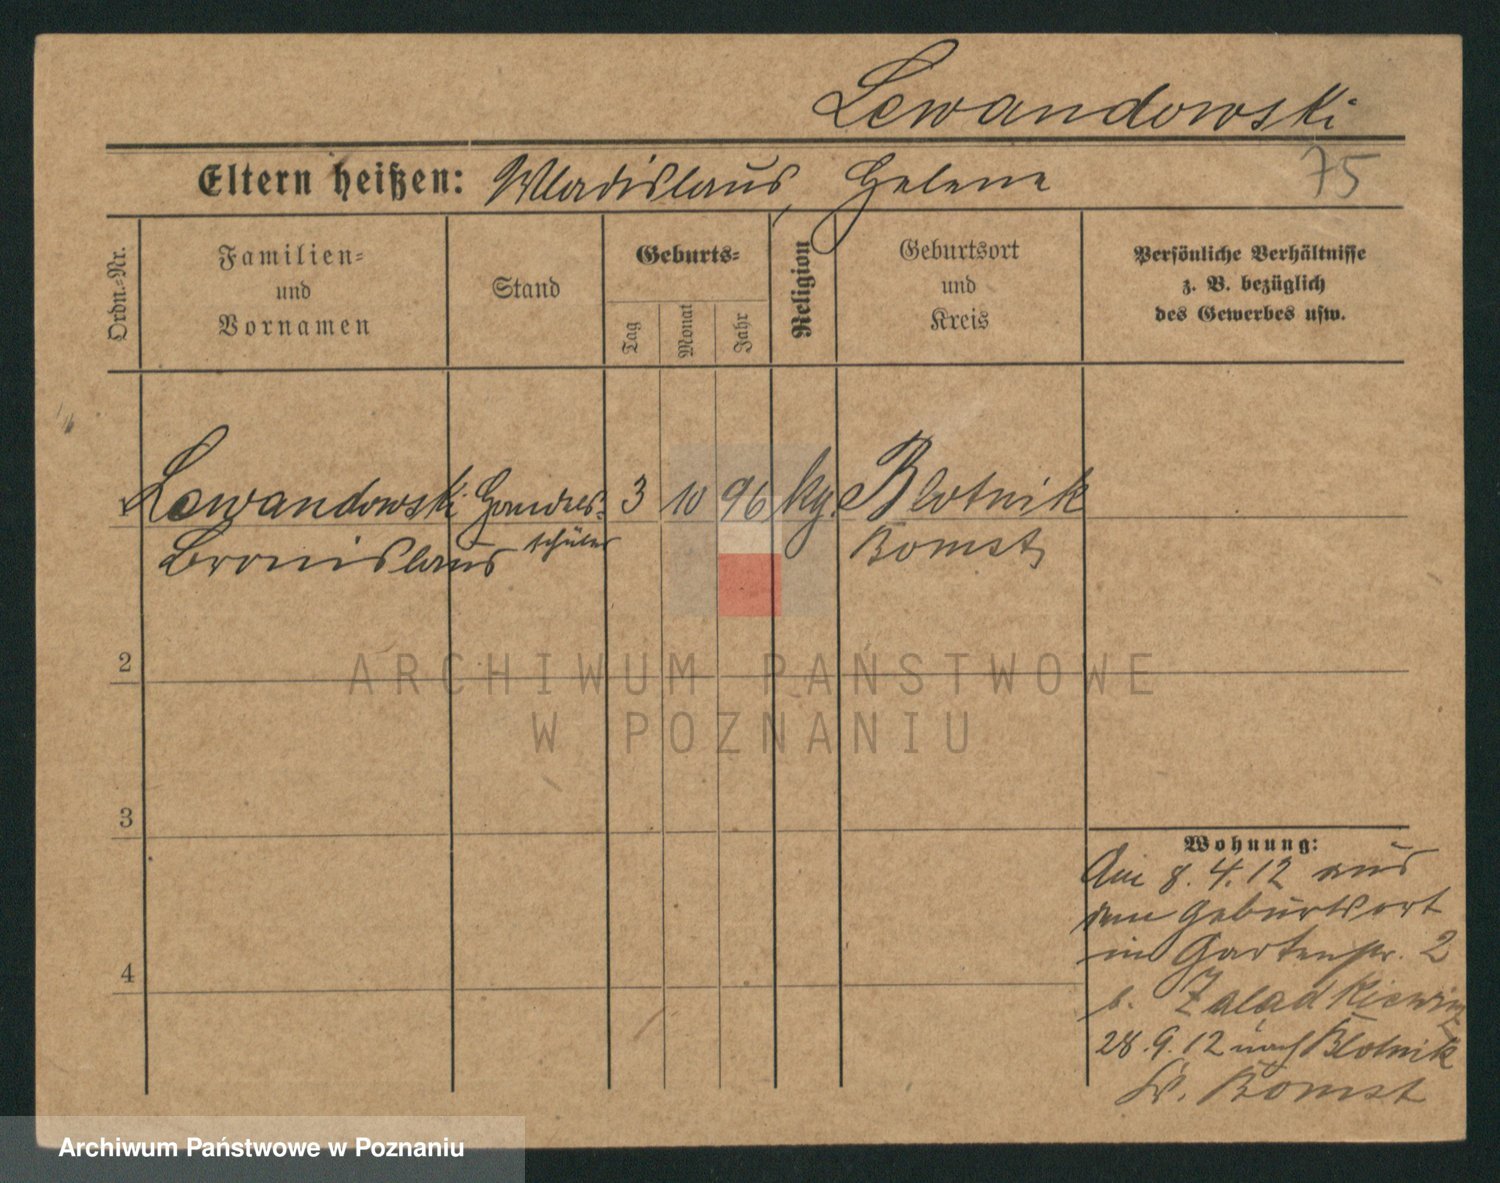 Lewandowski
Eltern heißen: Wladislaus, Helene
75
Ordn.=Nr.
Familien=
und
Vornamen
Stand
Geburts=
Tag
Monat
Jahr
Religion
Geburtsort
und
Kreis
Persönliche Verhältnisse
z. B. bezüglich
des Gewerbes usw.
Lewandowski Handels= 3 10 96 kg. Blotnik
Bronislaus schüler Bomst
2
3
4
Wohnung:
Am 8.4.12 aus
dem Geburtsort
in Gartenstr. 2
b.
28.9.12 nach Blotnik
Kr. Bomst
ARCHIWUM PAŃSTWOWE
W POZNANIU
Archiwum Państwowe w Poznaniu